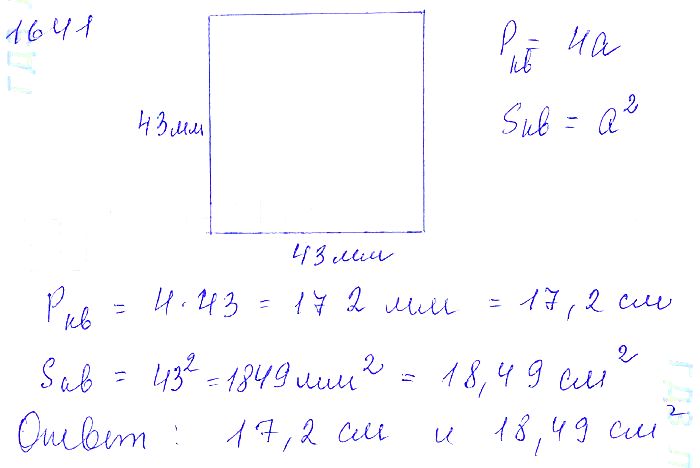 1641
P кв = 4a
43мм
Sкв = a²
43мм
P кв = 4·43 = 172 мм = 17,2 см
Sкв = 43² = 1849 мм² = 18,49 см²
Ответ: 17,2 см и 18,49 см²